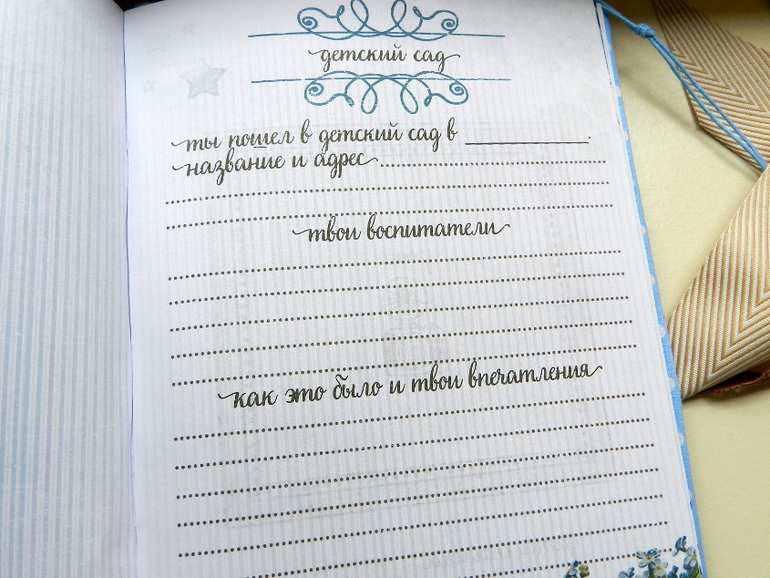 детский сад
ты пошел в детский сад в ____________.
название и адрес
твои воспитатели
как это было и твои впечатления